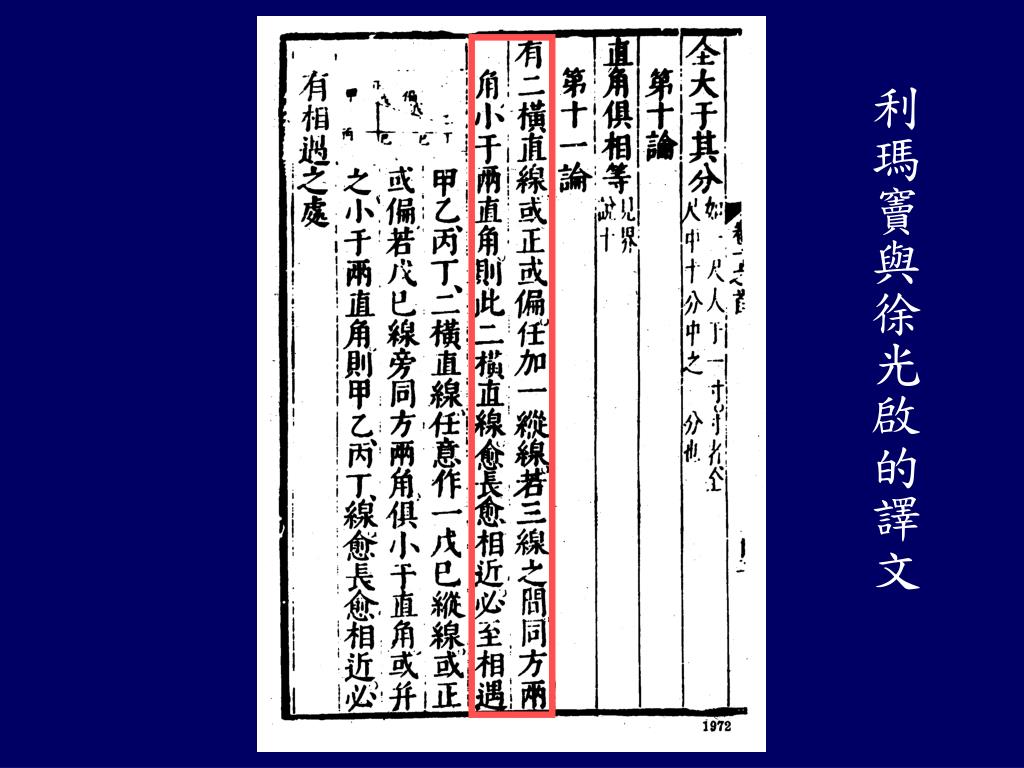 利瑪竇與徐光啟的譯文
全大于其分
第十論
直角俱相等
見界
說十
第十一論
有二橫直線或正或偏任加一縱線若三線之間同方兩
角小于兩直角則此二橫直線愈長愈相近必至相遇
甲乙丙丁二橫直線任意作一戊己縱線或正
或偏若戊己線旁同方兩角俱小于直角或幷
之小于兩直角則甲乙丙丁線愈長愈相近必
有相遇之處
甲
丙
丁
1972